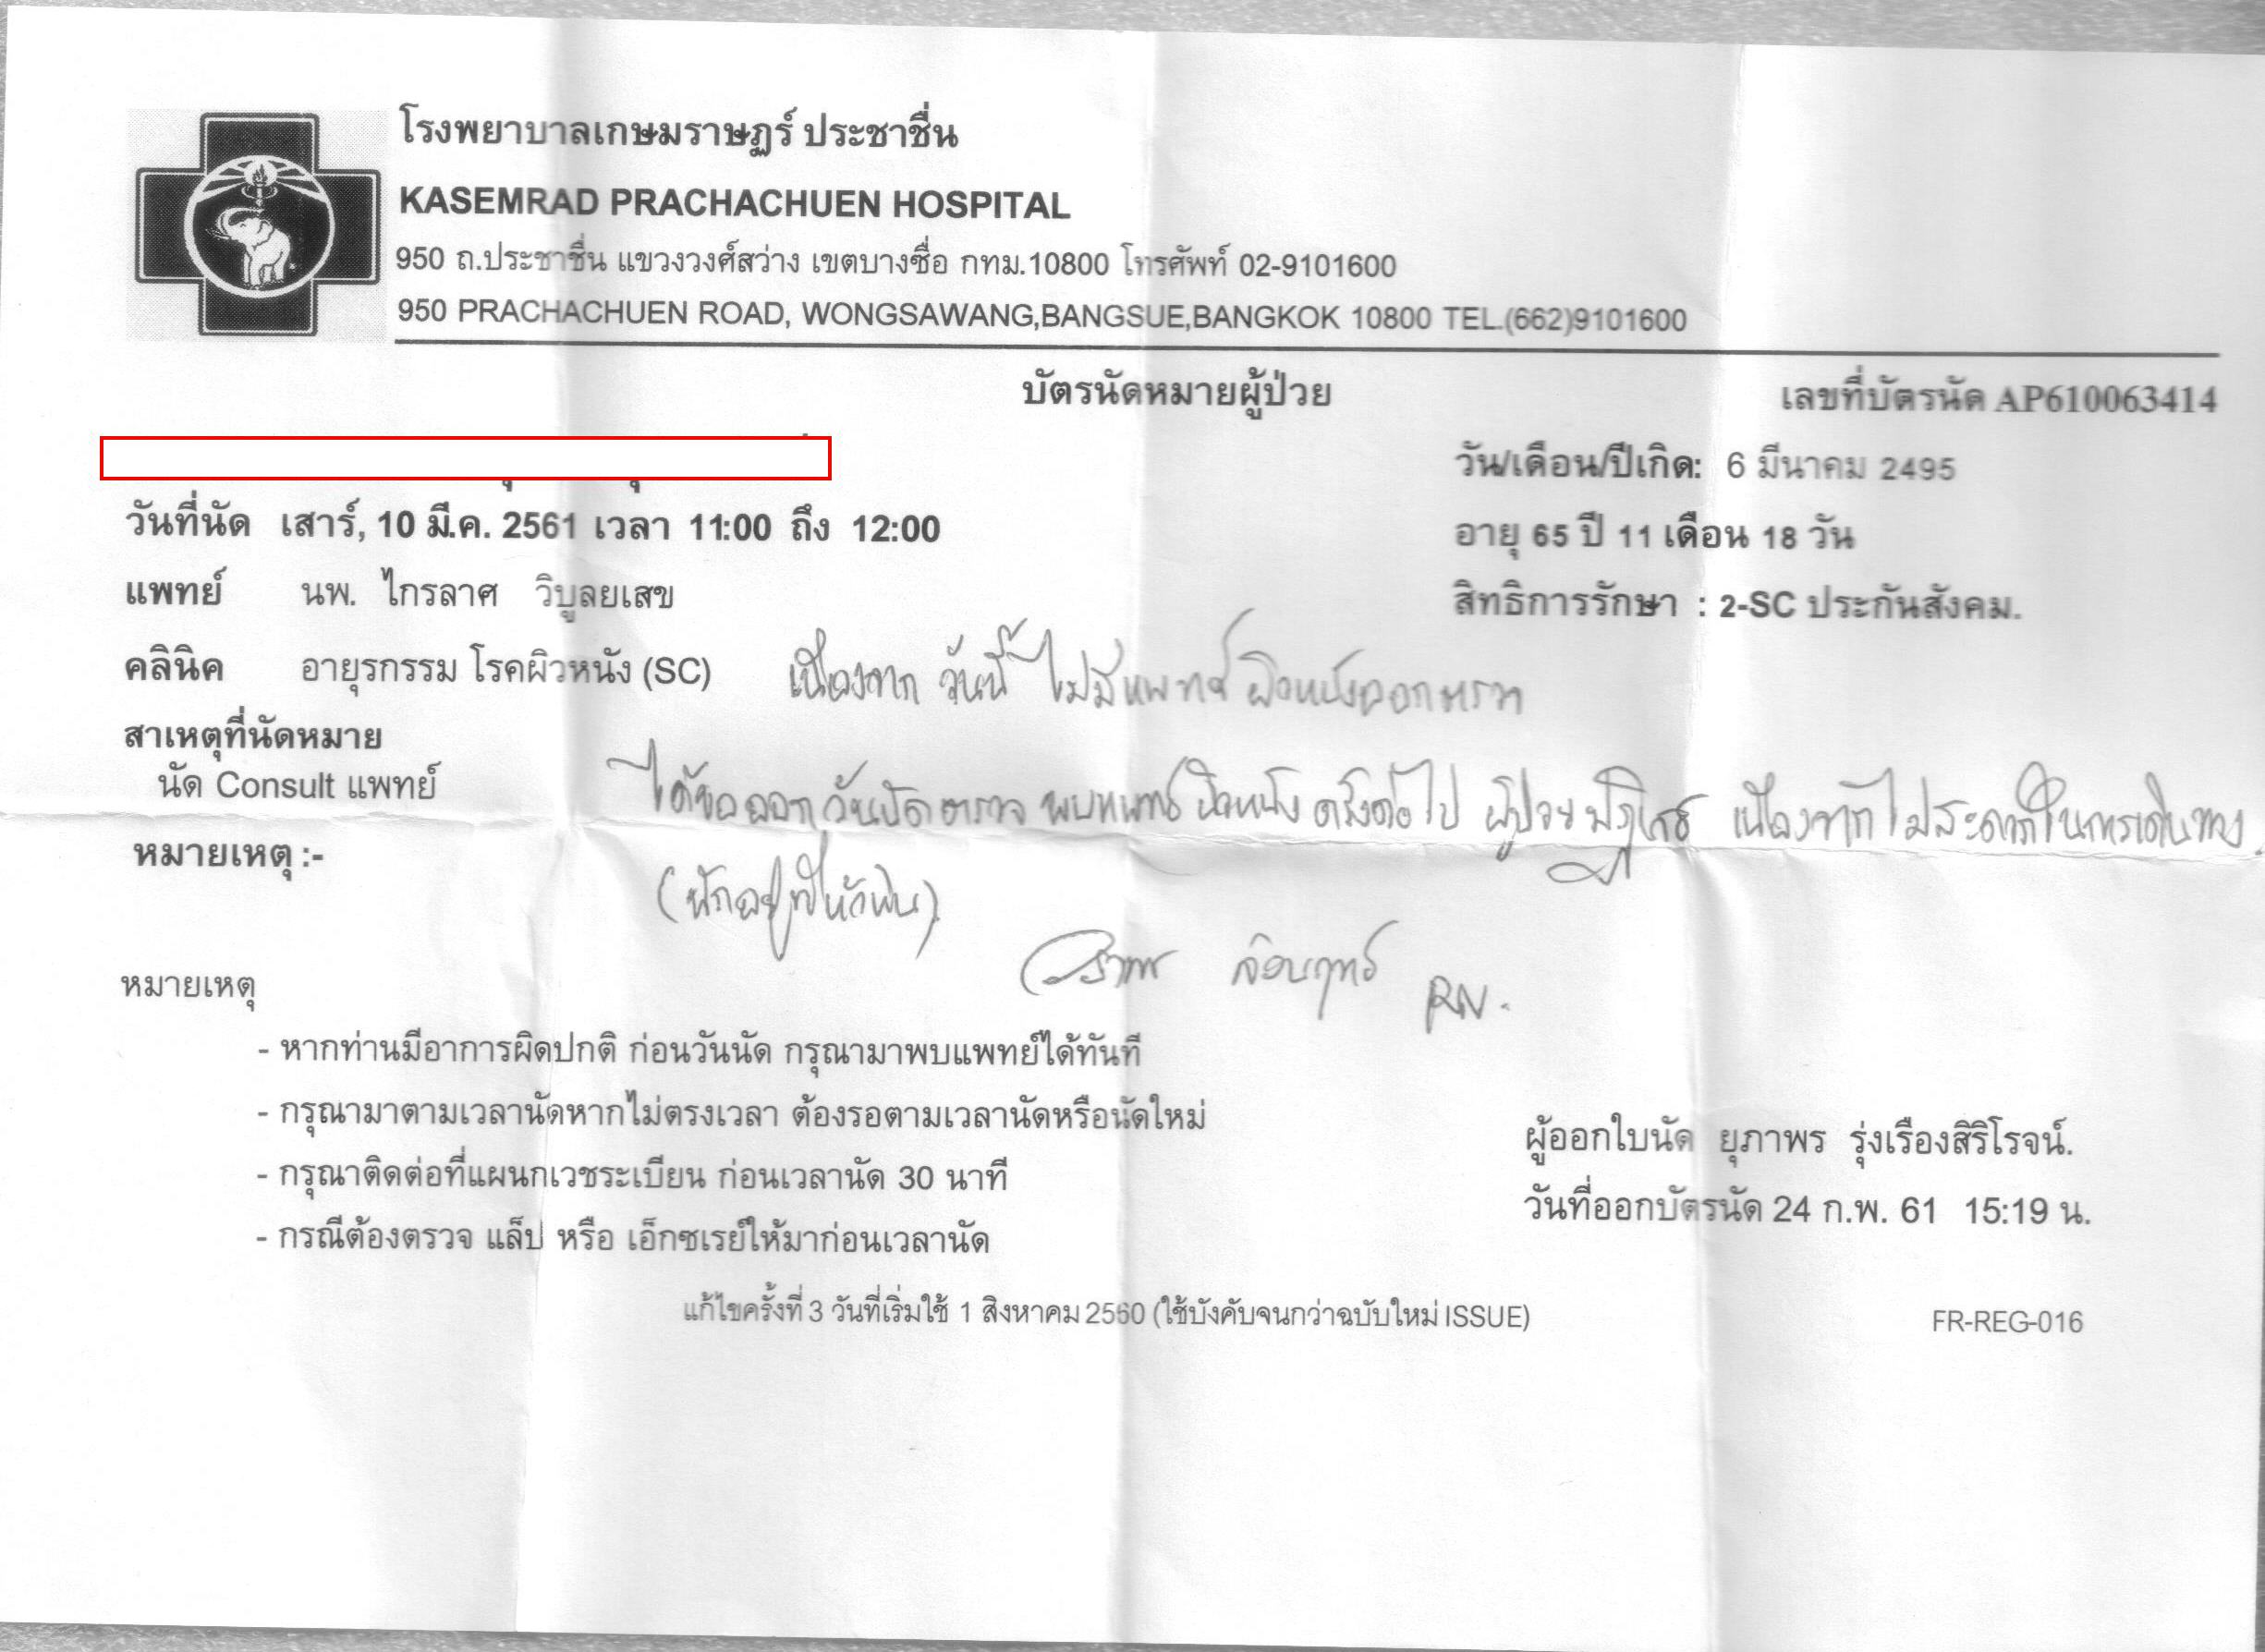 โรงพยาบาลเกษมราษฎร์ ประชาชื่น
KASEMRAD PRACHACHUEN HOSPITAL
950 ถ.ประชาชื่น แขวงวงศ์สว่าง เขตบางซื่อ กทม.10800 โทรศัพท์ 02-9101600
950 PRACHACHUEN ROAD, WONGSAWANG,BANGSUE,BANGKOK 10800 TEL.(662)9101600
บัตรนัดหมายผู้ป่วย
เลขที่บัตรนัด AP610063414
วัน/เดือน/ปีเกิด: 6 มีนาคม 2495
วันที่นัด เสาร์, 10 มี.ค. 2561 เวลา 11:00 ถึง 12:00
อายุ 65 ปี 11 เดือน 18 วัน
แพทย์ นพ. ไกรลาศ วิบูลยเสข
สิทธิการรักษา : 2-SC ประกันสังคม.
คลินิค อายุรกรรม โรคผิวหนัง (SC)
เนื่องจาก วันนี้ ไม่มีแพทย์ ผิวหนังออกตรวจ
สาเหตุที่นัดหมาย
นัด Consult แพทย์
ได้ขอออกวันนัดตรวจ พบแพทย์ ผิวหนัง ครั้งต่อไป ผู้ป่วยปฏิเสธ เนื่องจากไม่สะดวกในการเดินทาง
หมายเหตุ :-
(พักอยู่ที่หัวหิน)
RN.
หมายเหตุ
- หากท่านมีอาการผิดปกติ ก่อนวันนัด กรุณามาพบแพทย์ได้ทันที
- กรุณามาตามเวลานัดหากไม่ตรงเวลา ต้องรอตามเวลานัดหรือนัดใหม่
- กรุณาติดต่อที่แผนกเวชระเบียน ก่อนเวลานัด 30 นาที
- กรณีต้องตรวจ แล็ป หรือ เอ็กซเรย์ให้มาก่อนเวลานัด
ผู้ออกใบนัด ยุภาพร รุ่งเรืองสิริโรจน์.
วันที่ออกบัตรนัด 24 ก.พ. 61 15:19 น.
แก้ไขครั้งที่ 3 วันที่เริ่มใช้ 1 สิงหาคม 2560 (ใช้บังคับจนกว่าฉบับใหม่ ISSUE)
FR-REG-016